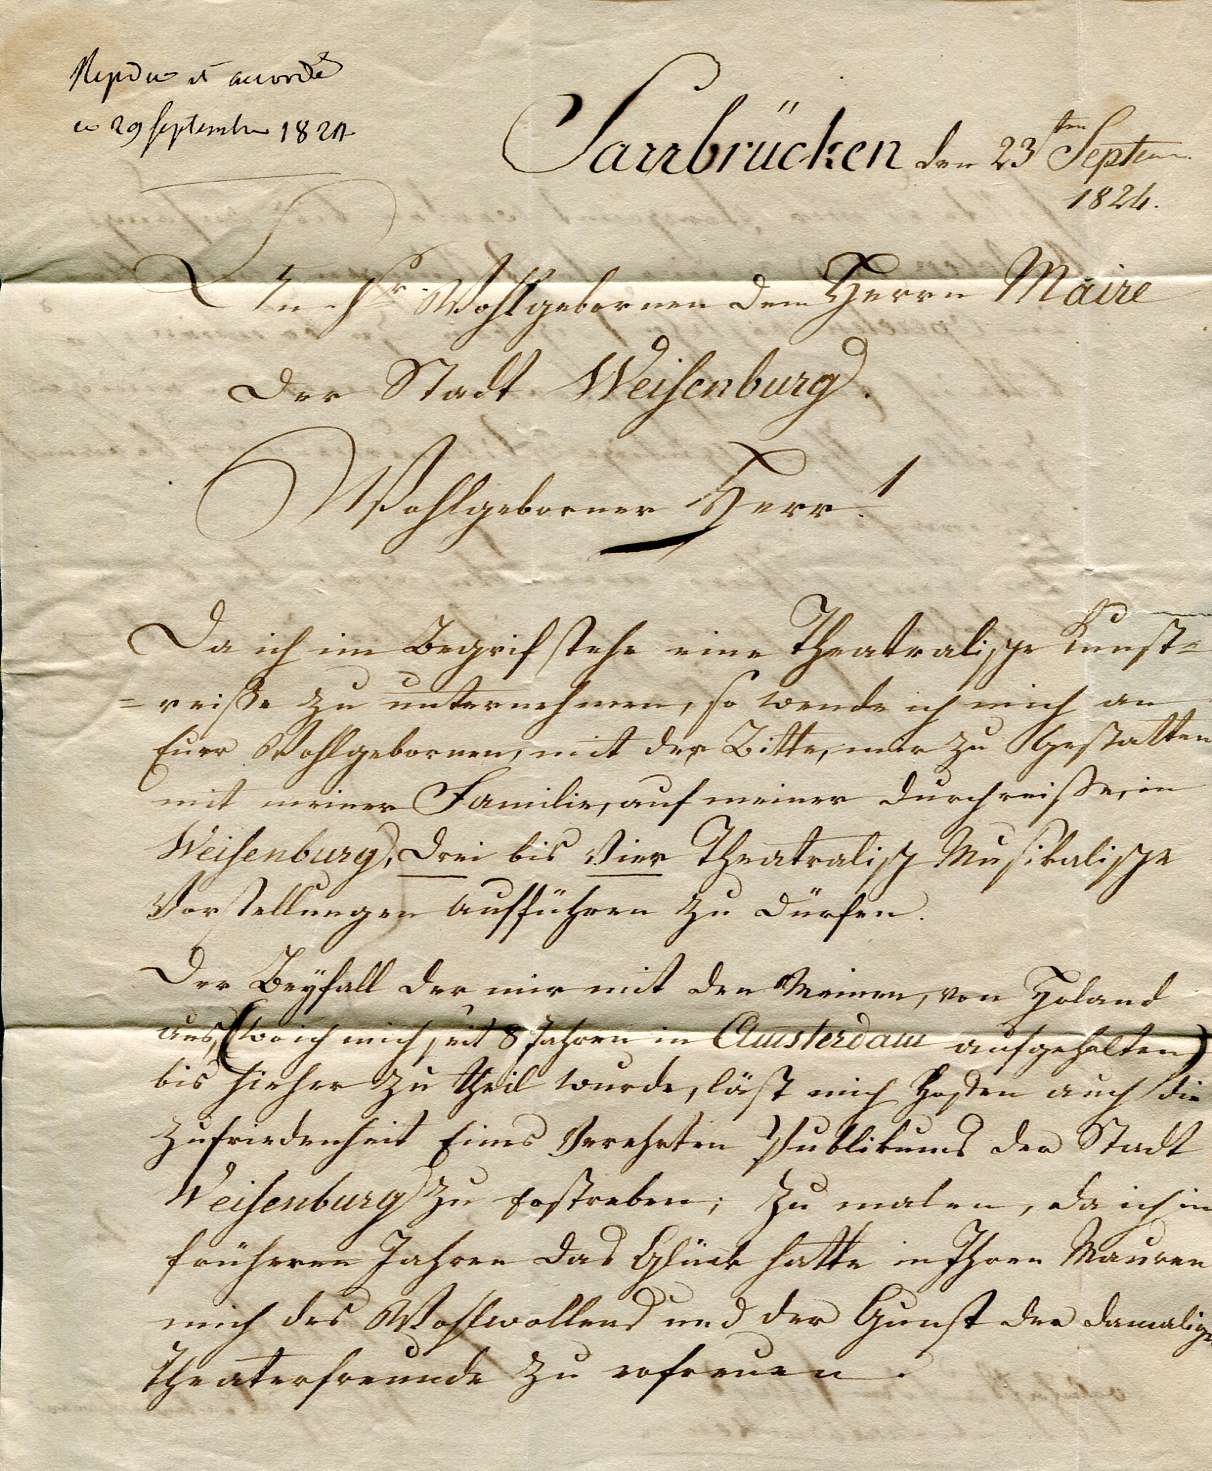 Repondu et accordé
ce 29 Septembre 1824
Sarrbrücken den 23ten Septem
1824.
An Sr. Wohlgebornen dem Herrn Maire
der Stadt Weisenburg.
Wohlgeborner Herr!
Da ich im Begrif stehe eine Theatralische Kunst=
=reiße zu unternehmen, so wende ich mich an
Euer Wohlgebornen, mit der Bitte, mir zu Gestatten
mit meiner Familie, auf meiner Durchreiße, in
Weisenburg, Drei bis Vier Theatralisch Musikalische
Vorstellungen Aufführen zu Dürfen.
Der Beyfall der mir mit den Meinen, von Holand
aus, (wo ich mich seit 8 Jahren in Amsterdam aufgehalten)
bis hieher zu theil wurde, läst mich Hoffen auch die
Zufriedenheit Eines Verehrten Publikums der Stadt
Weisenburg zu Erstreben; Zu malen, da ich in
früheren Jahren das Glück hatte in Ihren Mauren
mich des Wohlwollens und der Gunst der damaligen
Theaterfreunde zu erfreuen.